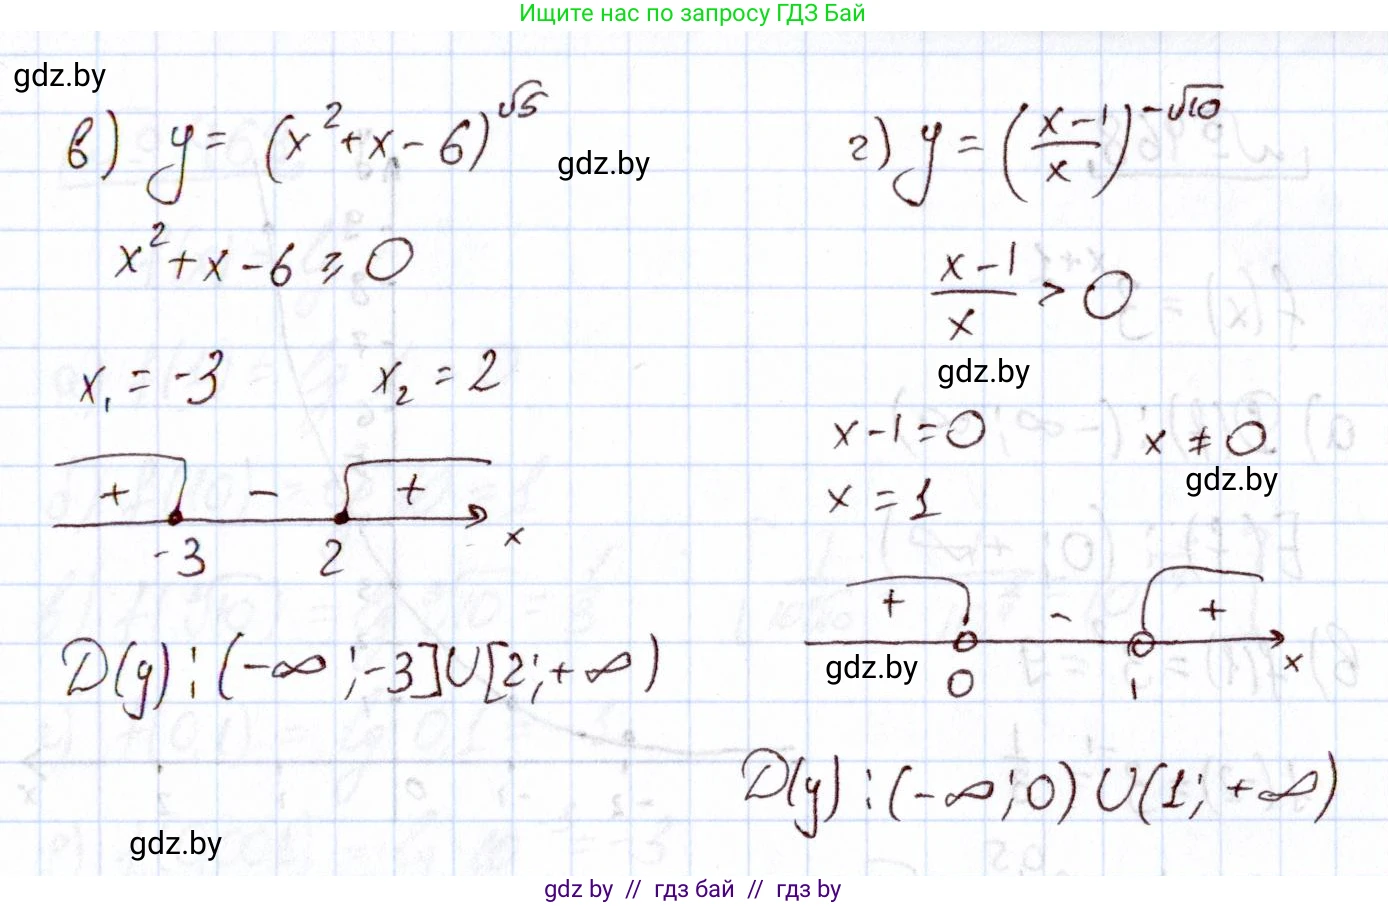 Ищите нас по запросу ГДЗ Бай
gdz.by
в) y = (x² + x - 6)^√5
gdz.by
x² + x - 6 ⩾ 0
x₁ = -3 x₂ = 2
+ - +
-3 2 x
D(y): (-∞; -3] U [2; +∞)
gdz.by
г) y = ((x-1)/x)^-√10
(x-1)/x > 0
gdz.by
x - 1 = 0 x ≠ 0
gdz.by
x = 1
+ - +
gdz.by
0 1 x
D(y): (-∞; 0) U (1; +∞)
gdz.by // гдз бай // гдз by